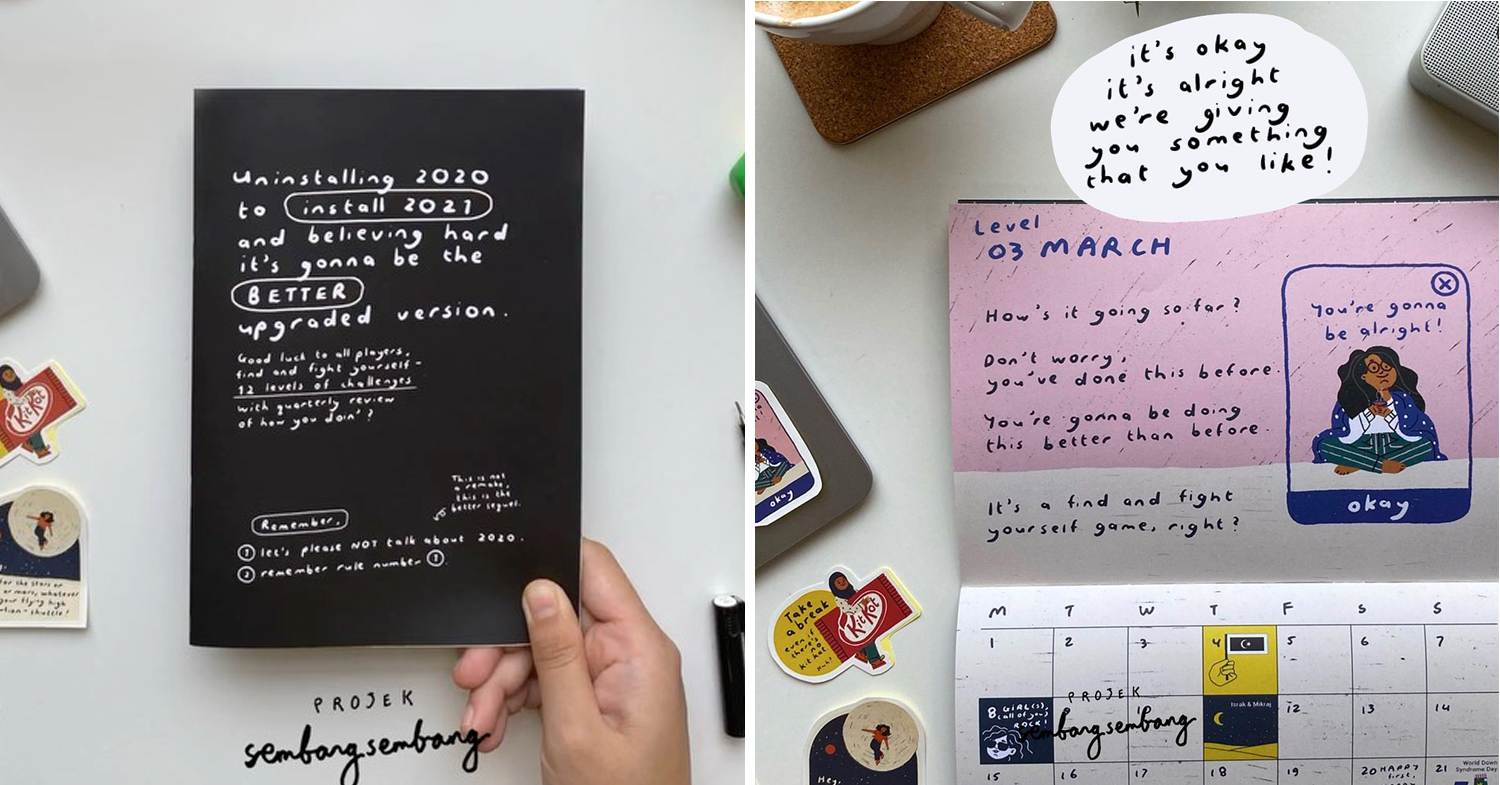 uninstalling 2020
to install 2021
and believing hard
it's gonna be the
BETTER
upgraded version.
Good luck to all players,
find and fight yourself -
12 levels of challenges
with quarterly review
of how you doin'?
This is not
a remake,
this is the
better sequel.
Remember,
1 let's please NOT talk about 2020.
2 remember rule number 1.
KitKat
for the stars or
or mars, whatever
your flying high
PROJEK
sembangsembang
it's okay
it's alright
we're giving
you something
that you like!
Level
03 MARCH
How's it going so far?
Don't worry,
you've done this before.
You're gonna be doing
this better than before.
It's a find and fight
yourself game, right?
You're gonna
be alright!
okay
okay
M T W T F S S
1 2 3 4 5 6 7
8 GIRL(S),
(all of you)
ROCK!
Israk & Mikraj
12 13 14
PROJEK
sembangsembang
15 16 17 18 19 20 HAPPY
first,
21 World Down
Syndrome Day
Take
a break
even if
there's
no
kit kat
KitKat
Hey,